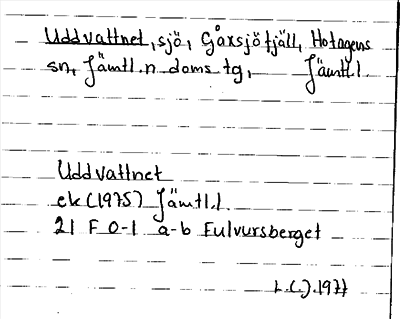 Uddvattnet, sjö, Gåxsjö fjäll, Hotagens
sn, Jämtl. n doms tg, Jämtl. l.
Uddvattnet
ek (1975) Jämtl. l
21 F 0-1 a-b Fulvursberget
L.C.J. 1977